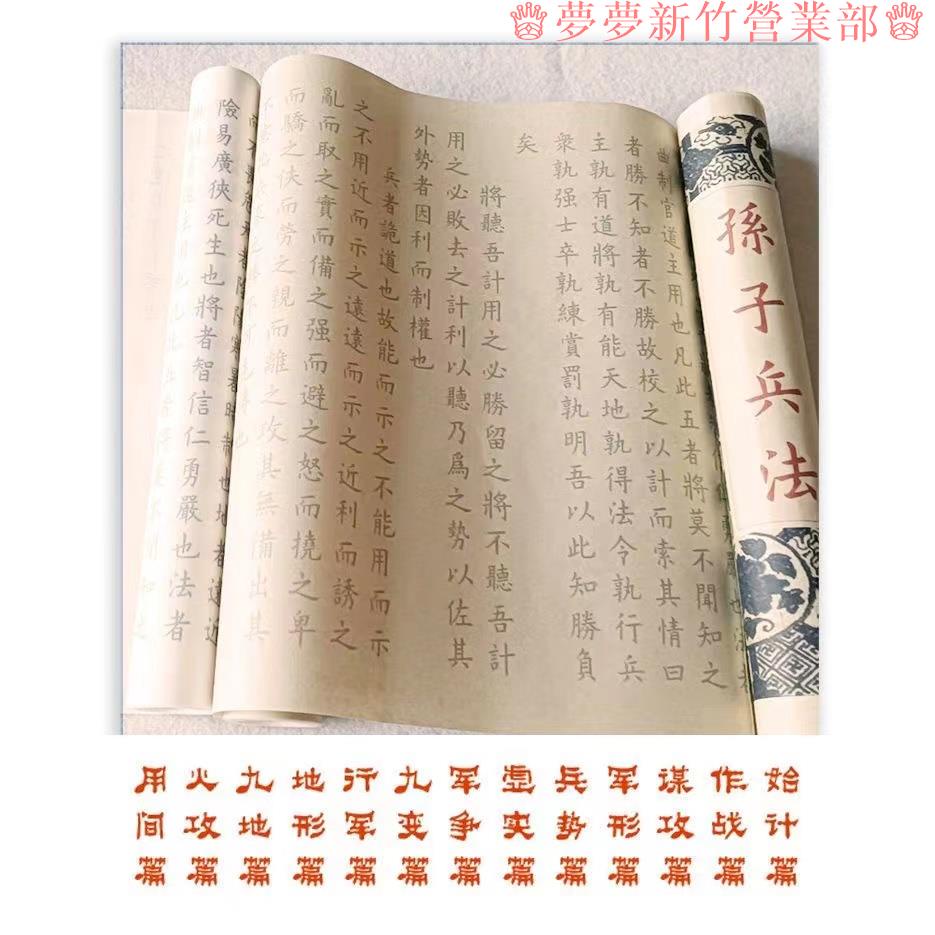 夢夢新竹營業部
孫子兵法
曲制官道主用也凡此五者將莫不聞知之
者勝不知者不勝故校之以計而索其情曰
主孰有道將孰有能天地孰得法令孰行兵
衆孰强士卒孰練賞罰孰明吾以此知勝負
矣
將聽吾計用之必勝留之將不聽吾計
用之必敗去之計利以聽乃爲之勢以佐其
外勢者因利而制權也
兵者詭道也故能而示之不能用而示
之不用近而示之遠遠而示之近利而誘之
亂而取之實而備之强而避之怒而撓之卑
而驕之佚而勞之親而離之攻其無備出其
寒暑時制也地者遠近
險易廣狹死生也將者智信仁勇嚴也法者
始计篇
作战篇
谋攻篇
军形篇
兵势篇
虚实篇
军争篇
九变篇
行军篇
地形篇
九地篇
火攻篇
用间篇